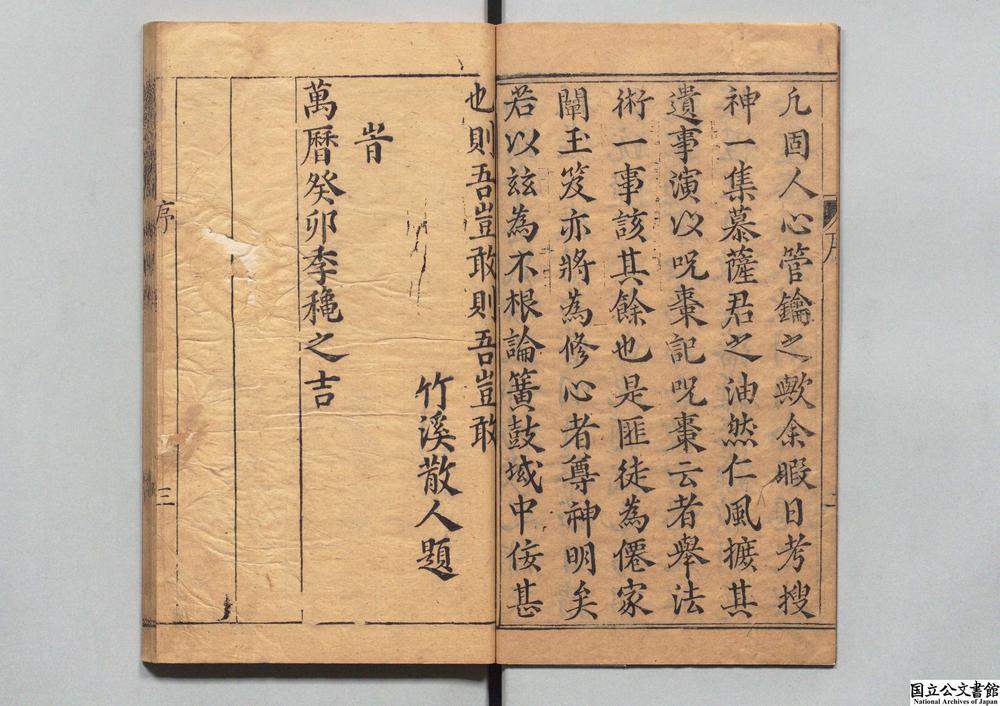 凡固人心管鑰之歟余暇日考搜
神一集慕薩君之油然仁風摭其
遺事演以呪棗記呪棗云者舉法
術一事該其餘也是匪徒為僊家
闡玉笈亦將為修心者尊神明矣
若以茲為不根論簧鼓域中佞甚
也則吾豈敢則吾豈敢
竹溪散人題
旹
萬曆癸卯季穐之吉
序
三
国立公文書館
National Archives of Japan